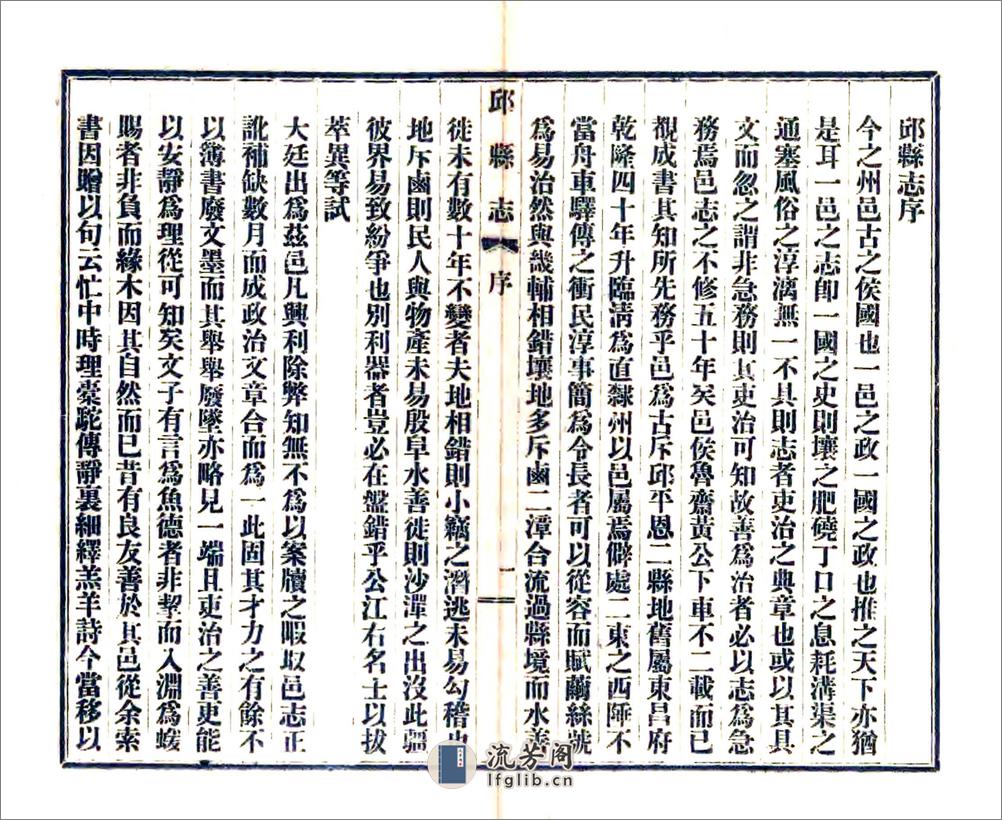 邱縣志序
今之州邑古之侯國也一邑之政一國之政也推之天下亦猶
是耳一邑之志卽一國之史則壤之肥磽丁口之息耗溝渠之
通塞風俗之淳漓無一不具則志者吏治之典章也或以其具
文而忽之謂非急務則其吏治可知故善爲治者必以志爲急
務焉邑志之不修五十年矣邑侯魯齋黃公下車不二載而已
覩成書其知所先務乎邑爲古斥邱平恩二縣地舊屬東昌府
乾隆四十年升臨淸爲直隸州以邑屬焉僻處二東之西陲不
當舟車驛傳之衝民淳事簡爲令長者可以從容而賦繭絲號
爲易治然與畿輔相錯壤地多斥鹵二漳合流過縣境而水善
徙未有數十年不變者夫地相錯則小竊之潛逃未易勾稽也
地斥鹵則民人與物產未易殷阜水善徙則沙潬之出沒此疆
彼界易致紛爭也別利器者豈必在盤錯乎公江右名士以拔
萃異等試
大廷出爲茲邑凡興利除弊知無不爲以案牘之暇取邑志正
訛補缺數月而成政治文章合而爲一此固其才力之有餘不
以簿書廢文墨而其舉舉廢墜亦略見一端且吏治之善更能
以安靜爲理從可知矣文子有言爲魚德者非挈而入淵爲蝯
賜者非負而緣木因其自然而已昔有良友善於其邑從余索
書因贈以句云忙中時理橐駝傳靜裏細繹羔羊詩今當移以
邱縣志 序 一
流芳阁
lfglib.cn